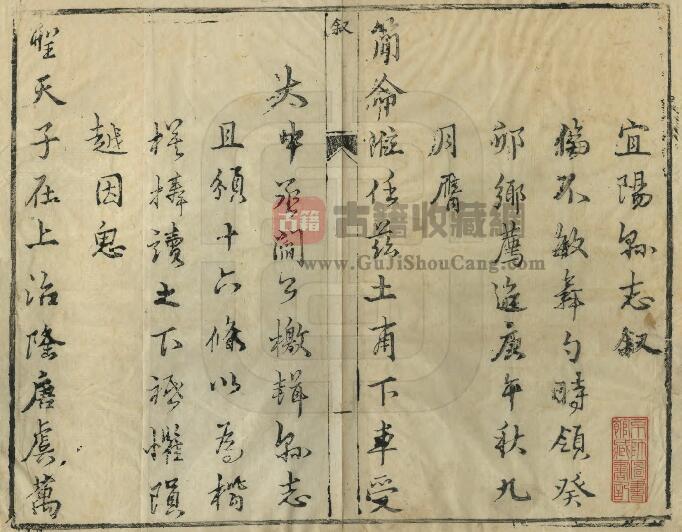 宜陽縣志叙
不敏舞勺時領癸
卯鄉薦迨庚午秋九
月膺
簡命惟任茲土甫下車受
叙
一
大中丞閻公檄輯縣志
且頒十六條以為楷
模捧讀之下祗懼隕
越因思
聖天子在上治隆唐虞萬
古籍
古籍收藏網
www.GuJiShouCang.com